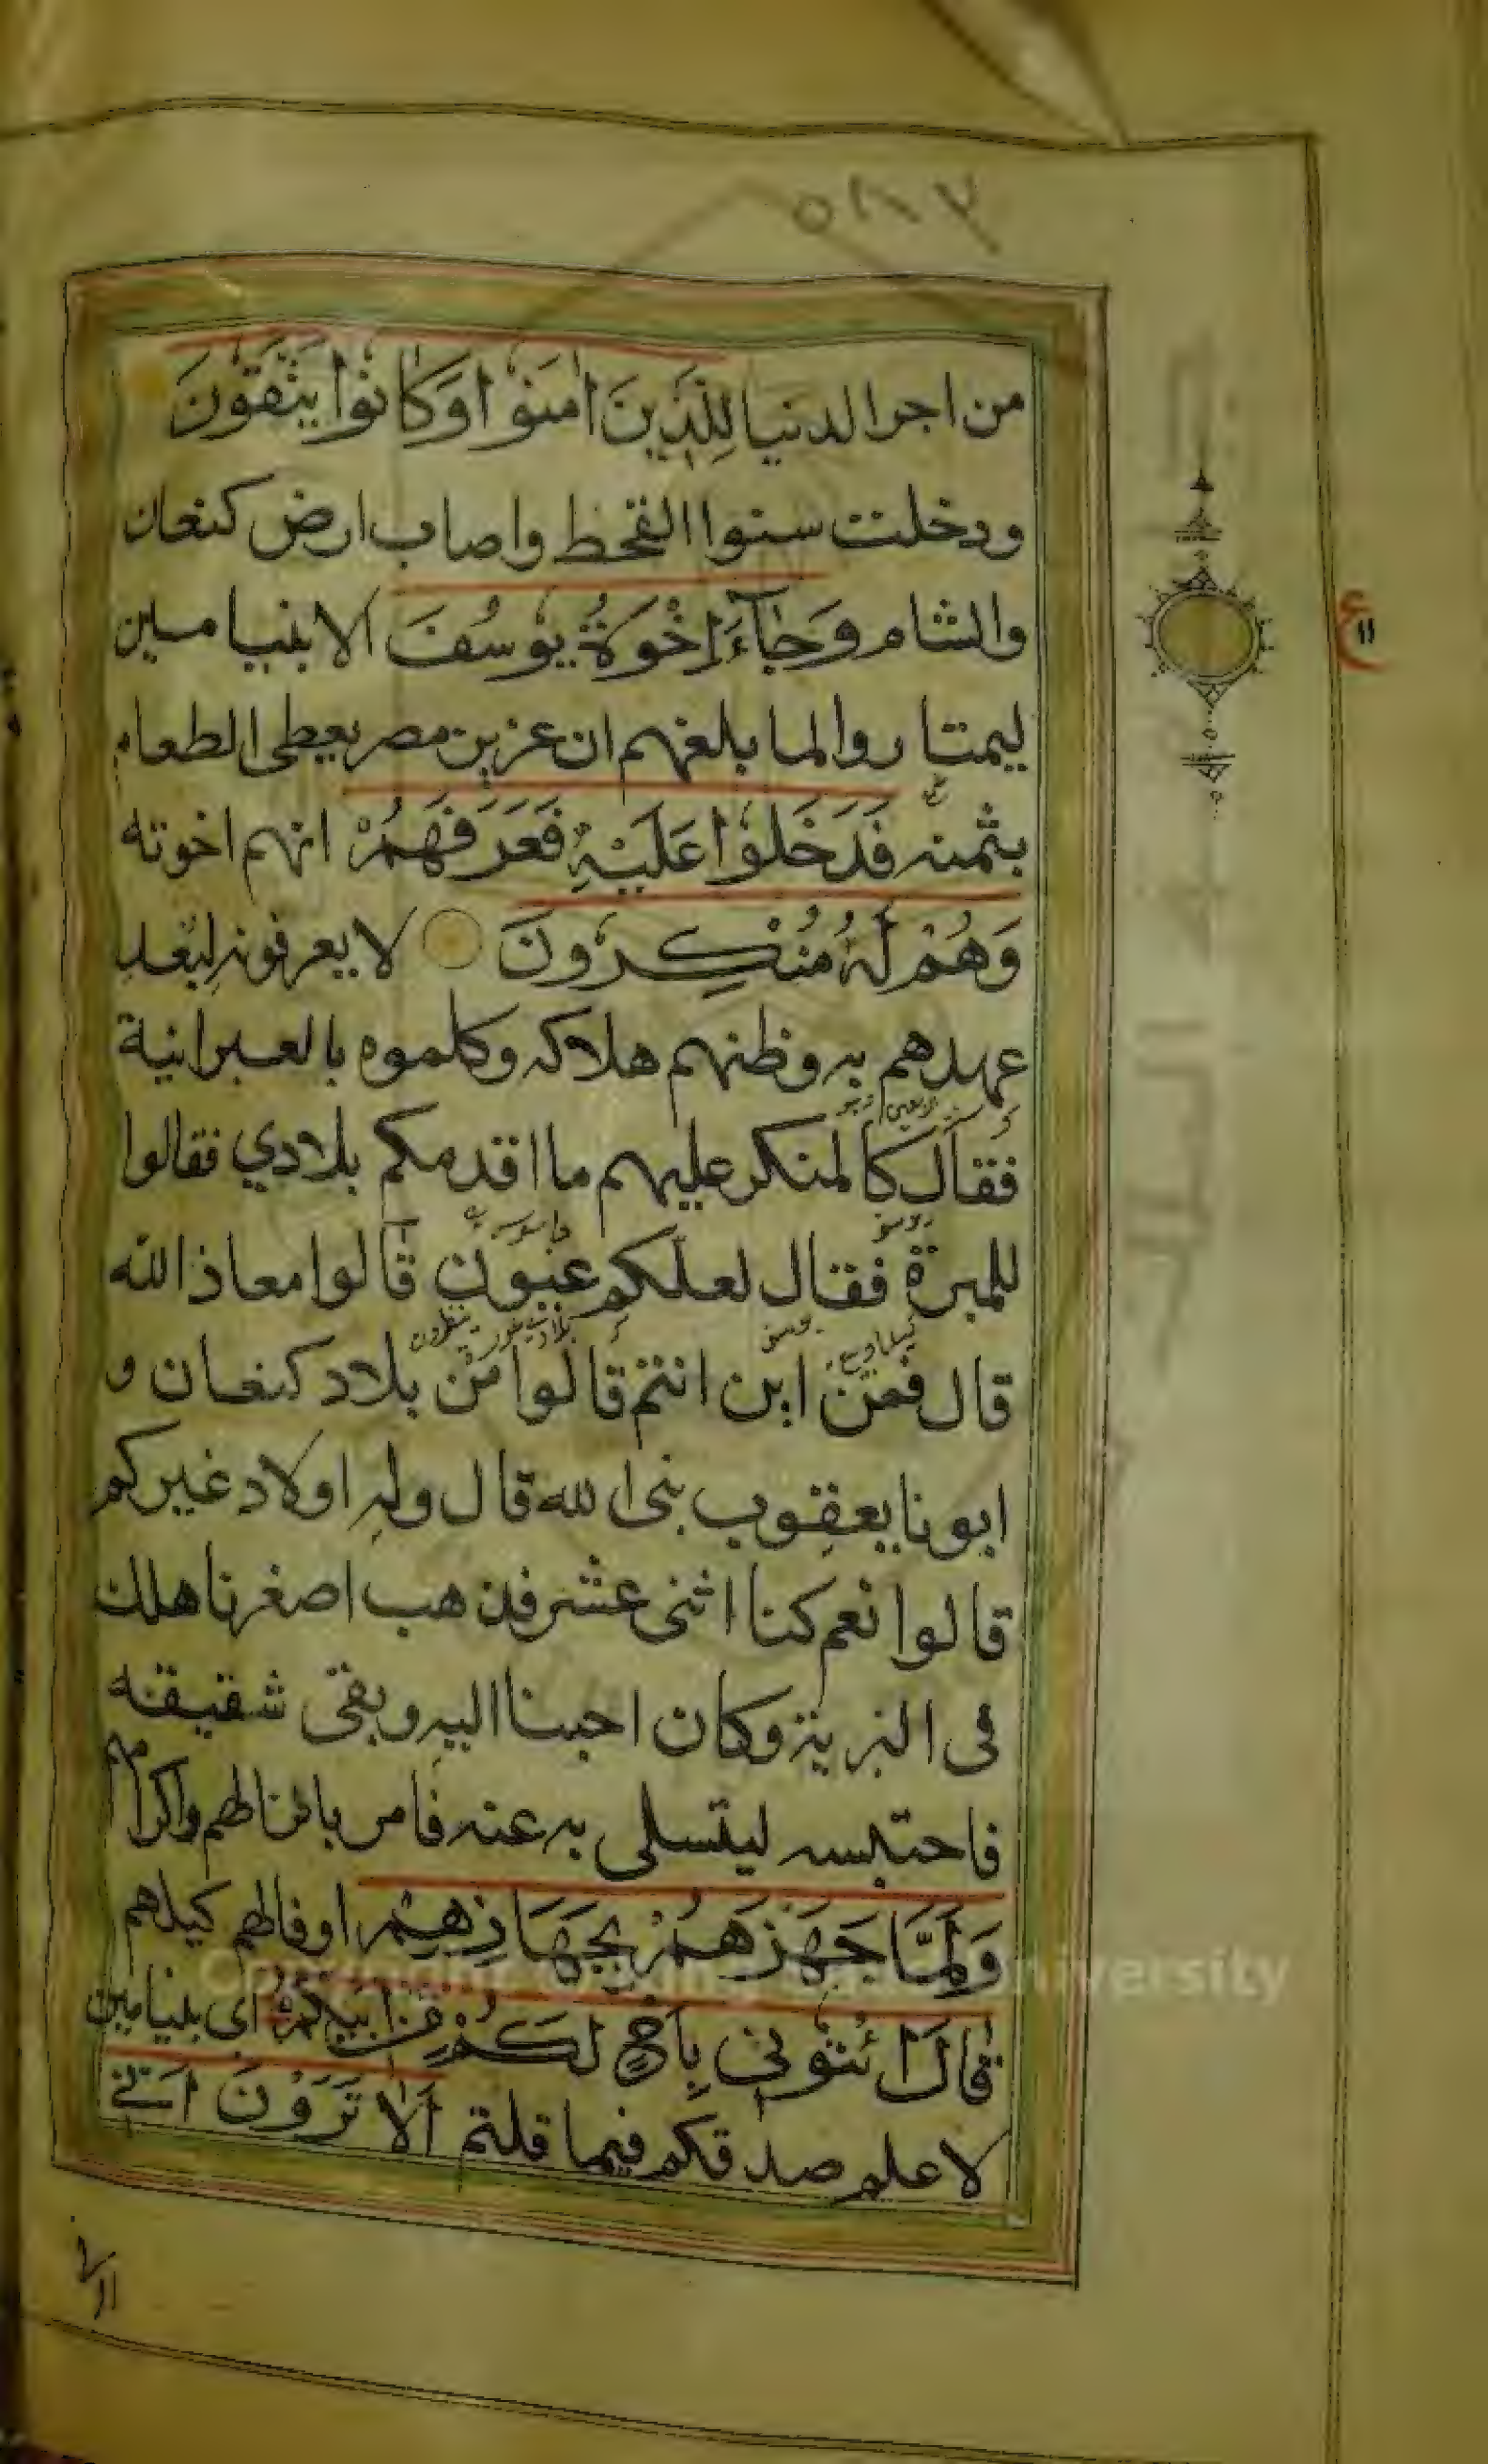 من اجر الدنيا لِلَّذِينَ اٰمَنُوْا وَكَانُوْا يَتَّقُوْنَ
ودخلت سنوا القحط واصاب ارض كنعان
والشام وَجَآءَ اِخْوَةُ يُوْسُفَ الا بنيامين
ليمتاروا لما بلغهم ان عزيز مصر يعطى الطعام
بثمنه فَدَخَلُوْا عَلَيْهِ فَعَرَفَهُمْ انهم اخوته
وَهُمْ لَهٗ مُنْكِرُوْنَ لا يعرفونه لبُعد
عهدهم به وظنهم هلاكه وكلموه بالعبرانية
فقال كالمنكر عليهم ما اقدمكم بلادي فقالوا
للميرة فقال لعلكم عيون قالوا معاذ الله
قال فمن اين انتم قالوا من بلاد كنعان و
ابونا يعقوب نبى الله قال وله اولاد غيركم
قالوا نعم كنا اثنى عشر فذهب اصغرنا هلك
فى البرية وكان احبنا اليه وبقى شقيقه
فاحتبسه ليتسلى به عنه فامر بانزالهم واكرامهم
وَلَمَّا جَهَّزَهُمْ بِجَهَازِهِمْ اوفا لهم كيلهم
قَالَ ائْتُوْنِى بِاَخٍ لَكُمْ مِنْ اَبِيْكُمْ اى بنيامين
لاعلم صدقكم فيما قلتم اَلَا تَرَوْنَ اَنِّىْ
ع
١١
Copyright © University